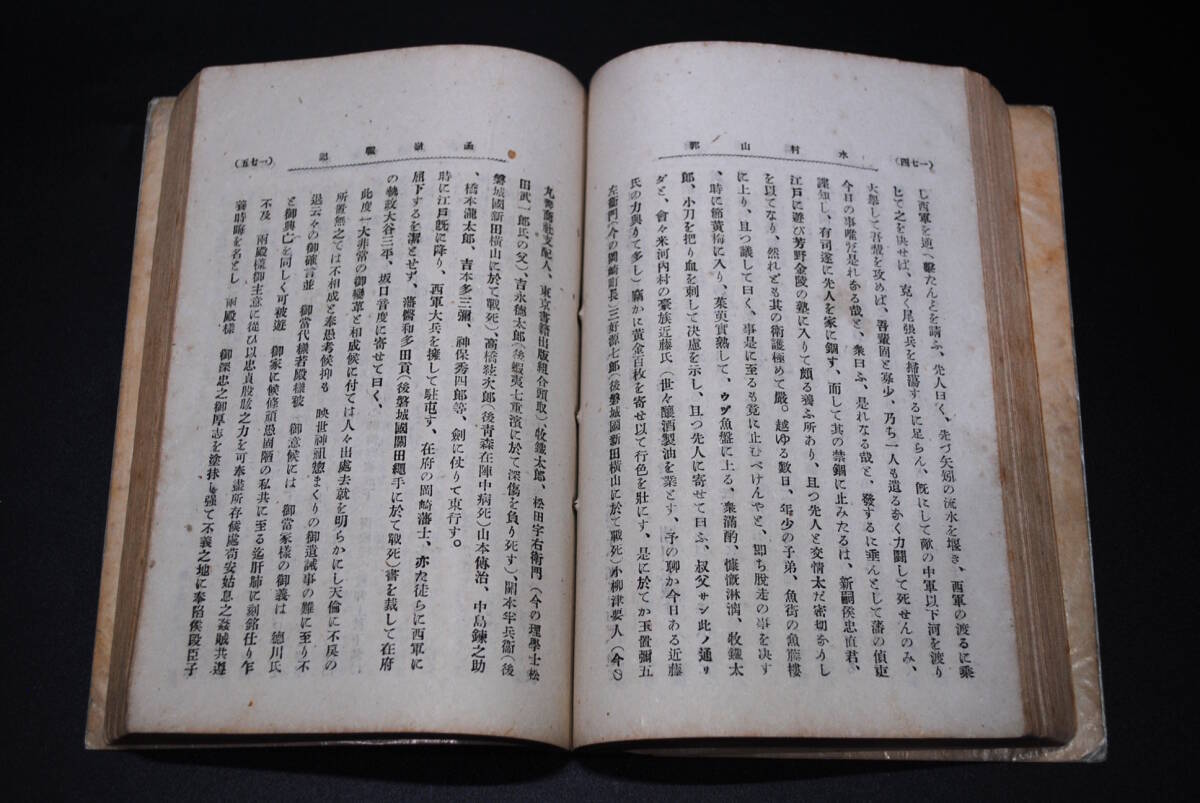 (一七四)
水村山郭
し西軍を逆へ擊たんとを請ふ、先人曰く、先づ矢矧の流水を堰き、西軍の渡るに乘
じて之を決せば、克く尾張兵を掃蕩するに足らん、旣にして敵の中軍以下河を渡り
大擧して吾儕を攻めば、吾輩固と寡少、乃ち一人も遺るなく力鬪して死せんのみ、
今日の事唯だ是れある哉と、衆曰ふ、是れなる哉と、發するに垂んとして藩の偵吏
謹知し、有司遂に先人を家に錮す、而して其の禁錮に止みたるは、新嗣侯忠直君、
江戶に遊び芳野金陵の塾に入りて頗る養ふ所あり、且つ先人と交情太だ密切なりし
を以てなり、然れども其の衛護極めて嚴。越ゆる數日、年少の子弟、魚街の魚藤樓
に上り、且つ議して曰く、事是に至るも竟に止むべけんやと、卽ち脫走の事を決す
、時に節黃梅に入り、茱萸實熟して、ウヅ魚盤に上る、衆滿酌、慷慨淋漓、牧鐵太
郞、小刀を把り血を刺して決慮を示し、且つ先人に寄せて曰ふ、叔父サン此ノ通リ
ダと、會々米河內村の豪族近藤氏(世々釀酒製油を業とす、予の聊か今日ある近藤
氏の力與りて多し)竊かに黃金百枚を寄せ以て行色を壯にす、是に於てか玉置彌五
左衞門(今の岡崎町長)三好源七郞(後磐城國新田橫山に於て戰死)小柳津要人(今の
(一七五)
丸善商社支配人、東京書籍出版組合頭取)、牧鐵太郞、松田宇右衞門(今の理學士松
田武一郞氏の父)、吉永德太郞(後蝦夷七重濱に於て深傷を負り死す)、關本牢兵衞(後
磐城國新田橫山に於て戰死)高橋㹨次郞(後靑森在陣中病死)山本傳治、中島鍊之助
、橋本瀧太郞、吉本多三彌、神保秀四郞等、劍に仗りて東行す。
時に江戶旣に降り、西軍大兵を擁して駐屯す、在府の岡崎藩士、亦た徒らに西軍に
屈下するを潔とせず、藩醫和多田貢(後磐城國關田繩手に於て戰死)書を裁して在府
の執政大谷三平、坂口音度に寄せて曰く、
此度一大非常の御變革と相成候に付ては人々出處去就を明らかにし天倫に不戾の
所置無之ては不相成と奉愚考候抑も 映世神祖惣まくりの御遺誡事の難に至り不
退云々の御確言並 御當代樣若殿樣被 仰意候には 御當家樣の御義は 德川氏
と御興亡を同しく可被遊 御家に候條頑愚固陋の私共に至る迄肝肺に刻銘仕り乍
不及 兩殿樣御主意に從ひ以忠貞股肱之力を可奉盡所存候處苟安姑息之姦賊共遵
養時晦を名とし 兩殿樣 御深忠之御厚志を塗抹し强て不義之地に奉陷候段臣子